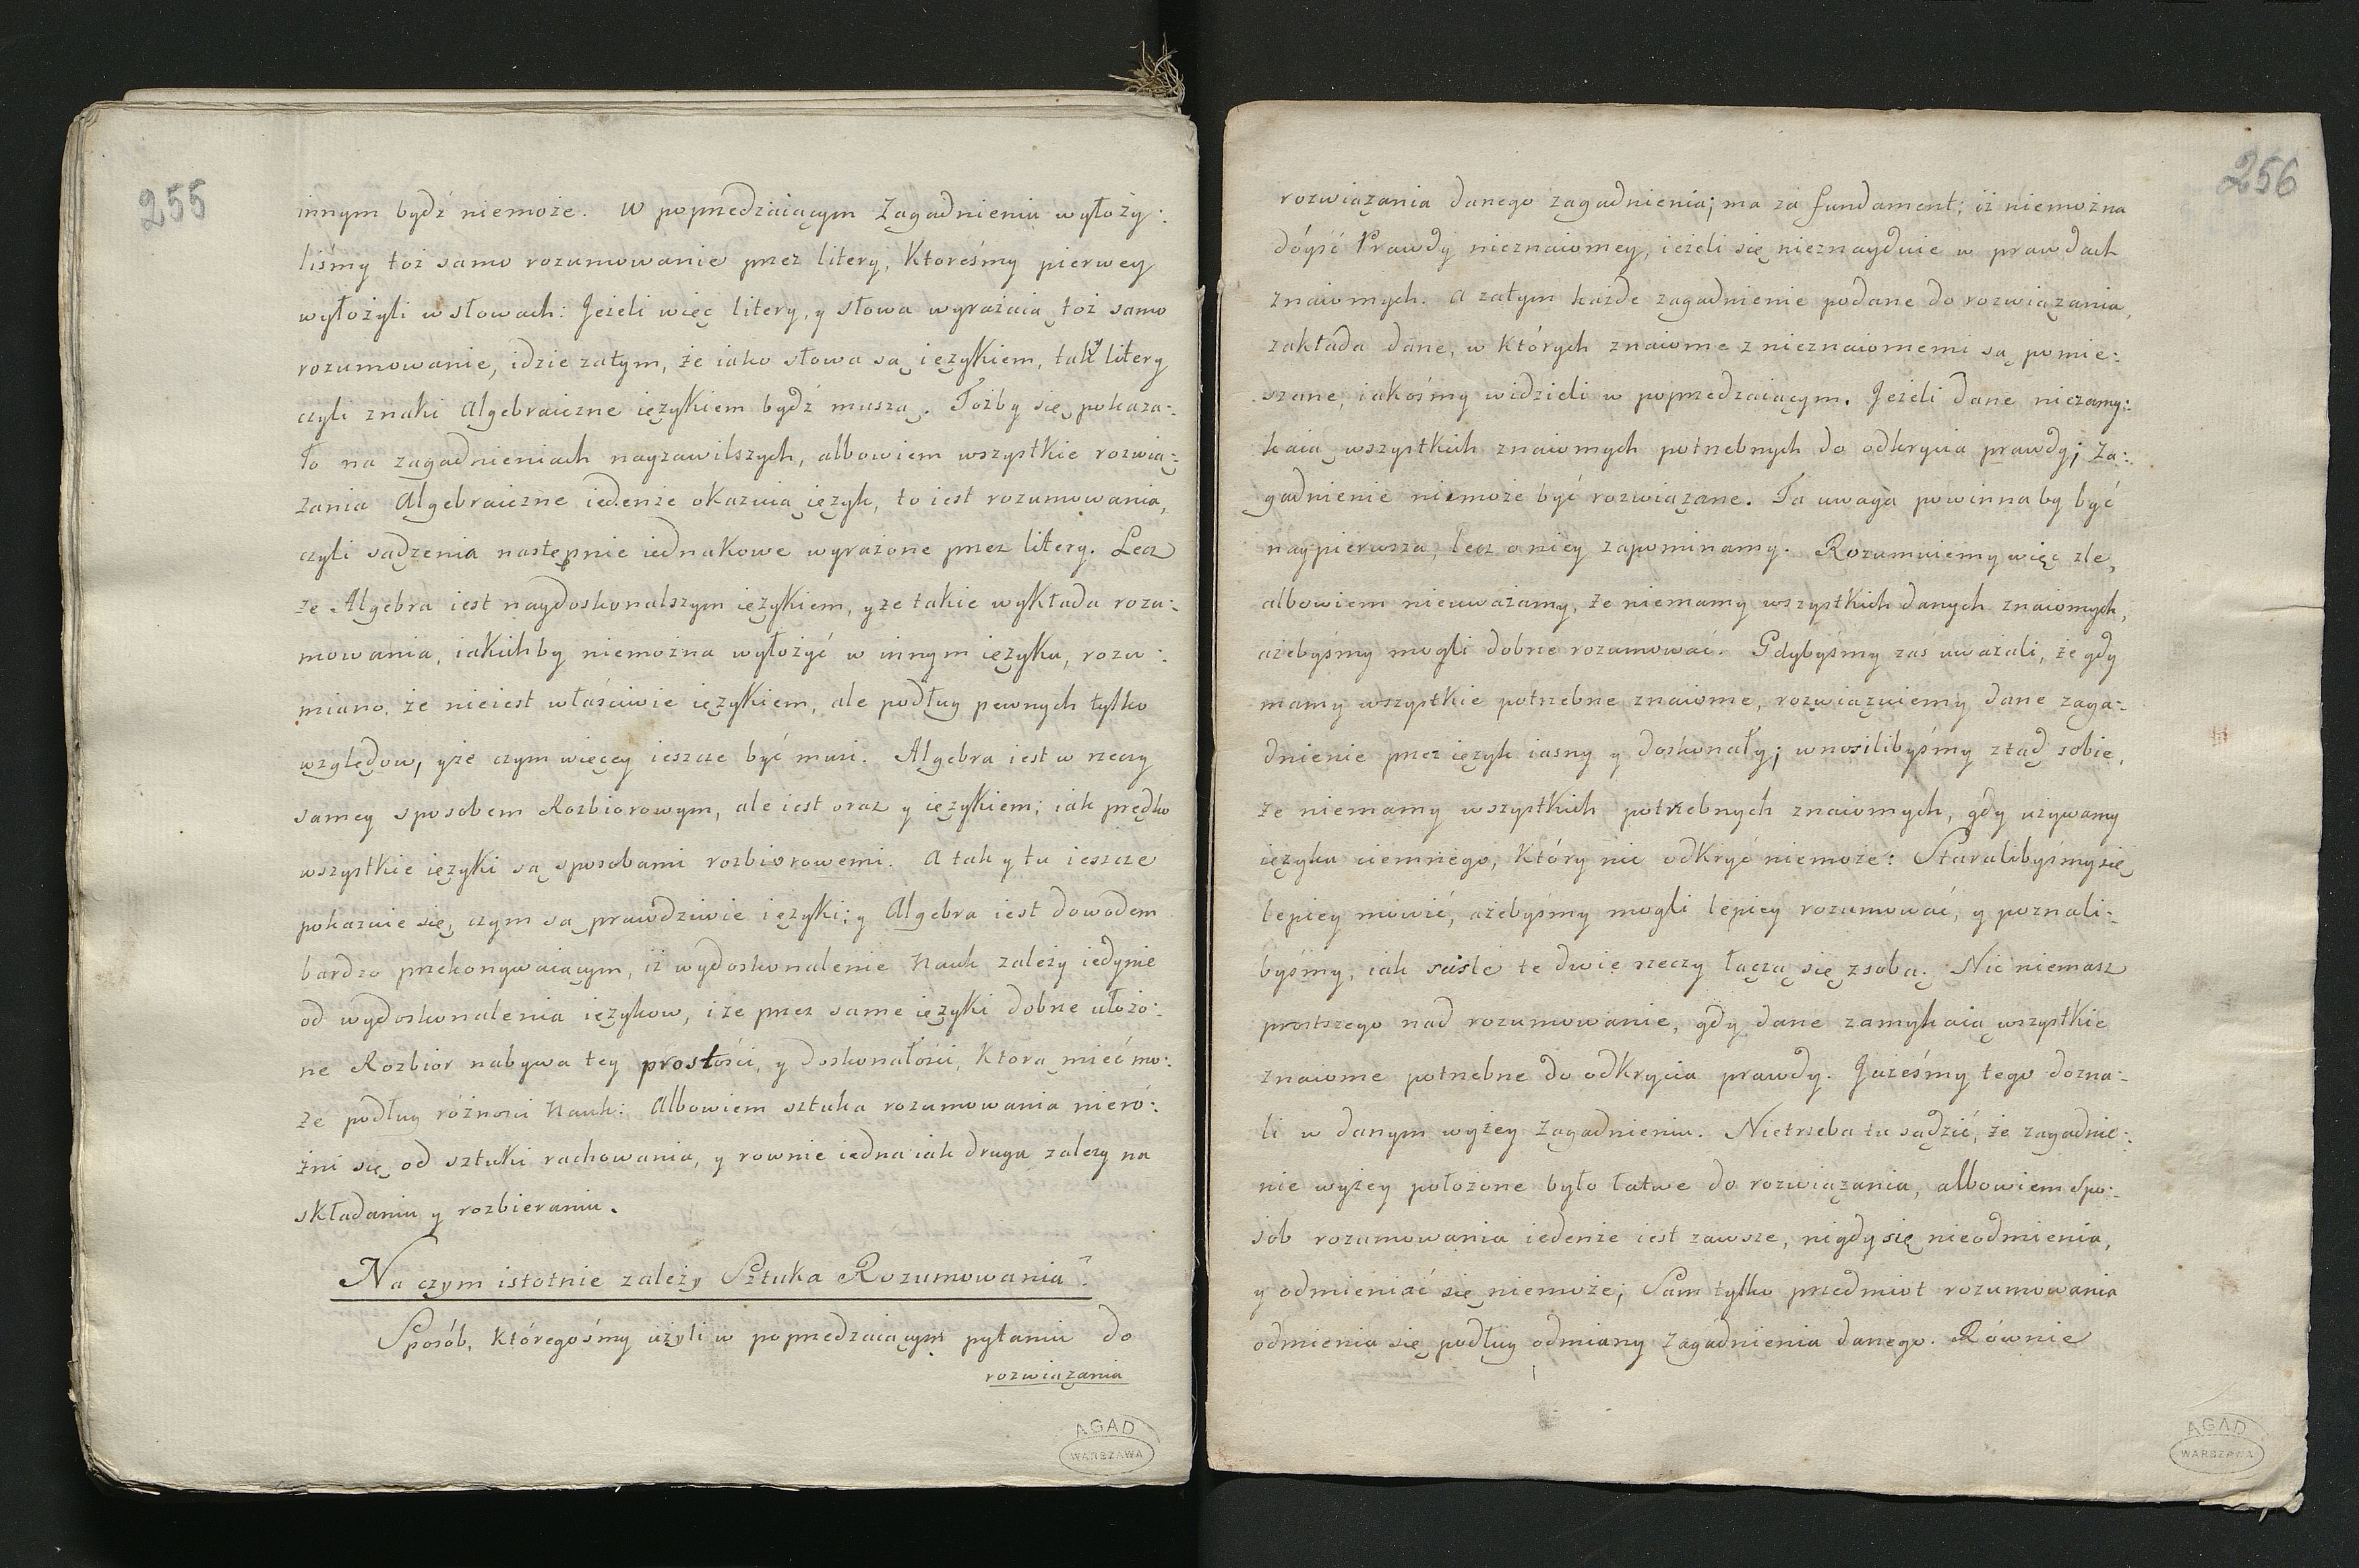 255
innym bydź niemoże. W poprzedzaiącym Zagadnieniu wyłoży:
liśmy toż samo rozumowanie przez litery, któreśmy pierwey
wyłożyli w słowach: Jeżeli więc litery, y słowa wyrażaią toż samo
rozumowanie, idzie zatym, że iako słowa są ięzykiem, tak y litery
czyli znaki Algebraiczne ięzykiem bydź muszą. Tożby się pokaza:
ło na zagadnieniach nayzawilszych, albowiem wszystkie rozwią:
zania Algebraiczne iedenże okazuią ięzyk, to iest rozumowania,
czyli sądzenia następnie iednakowe wyrażone przez litery. Lecz
że Algebra iest naydoskonalszym ięzykiem, y że takie wykłada rozu:
mowania, iakichby niemożna wyłożyć w innym ięzyku, rozu:
miano, że nieiest właściwie ięzykiem, ale podług pewnych tylko
względow, y że czym więcey ieszcze być musi. Algebra iest w rzeczy
samey sposobem Rozbiorowym, ale iest oraz y ięzykiem; iak prędko
wszystkie ięzyki są sposobami rozbiorowemi. A tak y tu ieszcze
pokazuie się, czym są prawdziwie ięzyki; y Algebra iest dowodem
bardzo przekonywaiącym, iż wydoskonalenie Nauk zależy iedynie
od wydoskonalenia ięzykow, i że przez same ięzyki dobrze ułożo:
ne Rozbior nabywa tey prostości, y doskonałości, ktorą mieć mo:
że podług różności Nauk: Albowiem sztuka rozumowania nieró:
żni się od sztuki rachowania, y rownie iedna iak druga zależy na
składaniu y rozbieraniu.
Na czym istotnie zależy Sztuka Rozumowania?
Sposób, któregośmy użyli w poprzedzaiącym pytaniu do
rozwiązania
AGAD
WARSZAWA
256
rozwiązania danego zagadnienia; ma za fundament: iż niemożna
dóyść Prawdy nieznaiomey, ieżeli się nieznayduie w prawdach
znaiomych. A zatym każde zagadnienie podane do rozwiązania,
zakłada dane, w których znaiome z nieznaiomemi są pomie:
szane, iakośmy widzieli w poprzedzaiącym. Jeżeli dane niezamy:
kaią wszystkich znaiomych potrzebnych do odkrycia prawdy; Za:
gadnienie niemoże być rozwiązane. Ta uwaga powinna by być
naypierwsza, lecz o niey zapominamy. Rozumuiemy więc zle,
albowiem nieuważamy, że niemamy wszystkich danych znaiomych,
ażebyśmy mogli dobrze rozumować. Gdybyśmy zaś uważali, że gdy
mamy wszystkie potrzebne znaiome, rozwiązuiemy dane zaga:
dnienie przez ięzyk iasny y doskonały; wnosilibyśmy ztąd sobie,
że niemamy wszystkich potrzebnych znaiomych, gdy używamy
ięzyka ciemnego, który nic odkryć niemoże: Staralibyśmy się
lepiey mowić, ażebyśmy mogli lepiey rozumować, y poznali:
byśmy, iak scisle te dwie rzeczy łączą się z sobą. Nic niemasz
prostszego nad rozumowanie, gdy dane zamykaią wszystkie
znaiome potrzebne do odkrycia prawdy. Jużeśmy tego dozna:
li w danym wyżey Zagadnieniu. Nietrzeba tu sądzić, że zagadnie:
nie wyżey położone było łatwe do rozwiązania, albowiem Spo:
sób rozumowania iedenże iest zawsze, nigdy się nieodmienia,
y odmieniać się niemoże; Sam tylko przedmiot rozumowania
odmienia się podług odmiany Zagadnienia danego. Równie
AGAD
WARSZAWA